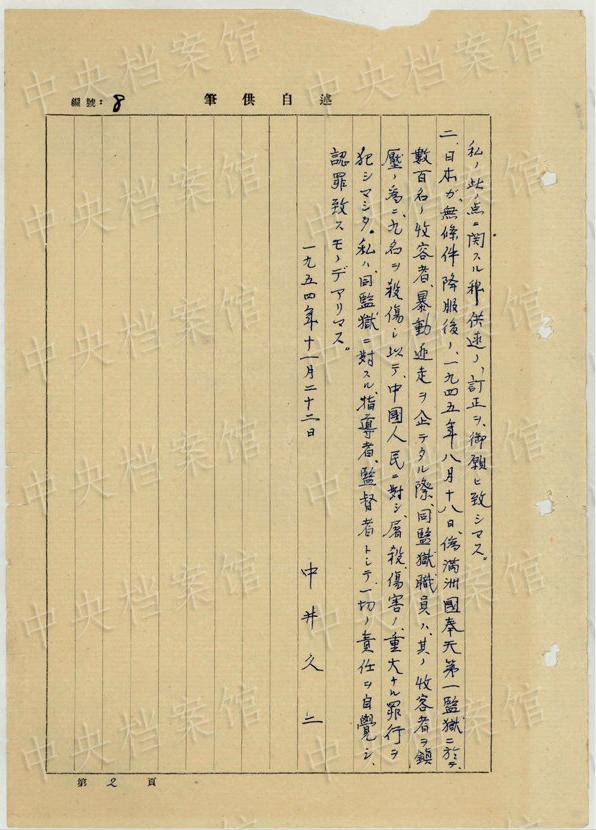 編號: 8
筆供自述
私ノ此ノ点ニ関スル供述ノ、訂正ヲ、御願ヒ致シマス。
二、日本ガ、無條件降服後ノ、一九四五年八月十八日、偽滿洲國奉天第一監獄ニ於テ、
數百名ノ收容者、暴動逃走ヲ企テタル際、同監獄職員ハ、其ノ收容者ヲ鎮
壓ノ為ニ、九名ヲ殺傷シ以テ、中國人民ニ對シ、屠殺、傷害ノ、重大ナル罪行ヲ
犯シマシタ。私ハ、同監獄ニ對スル、指導者、監督者トシテ、一切ノ責任ヲ自覺シ、
認罪致スモノデアリマス。
一九五四年十一月二十二日
中井久二
第 2 頁
中央档案馆